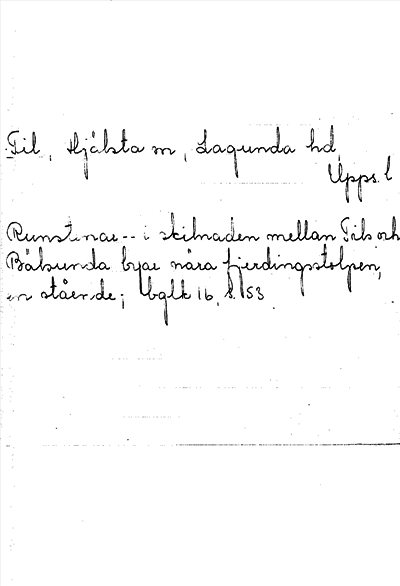 Til, Hjälsta sn, Lagunda hd,
Upps. l
Runstenar -- i skilnaden mellan Tils och
Bälsunda byar nära fjerdingsstolpen,
en stående; bglk 16, s. 53